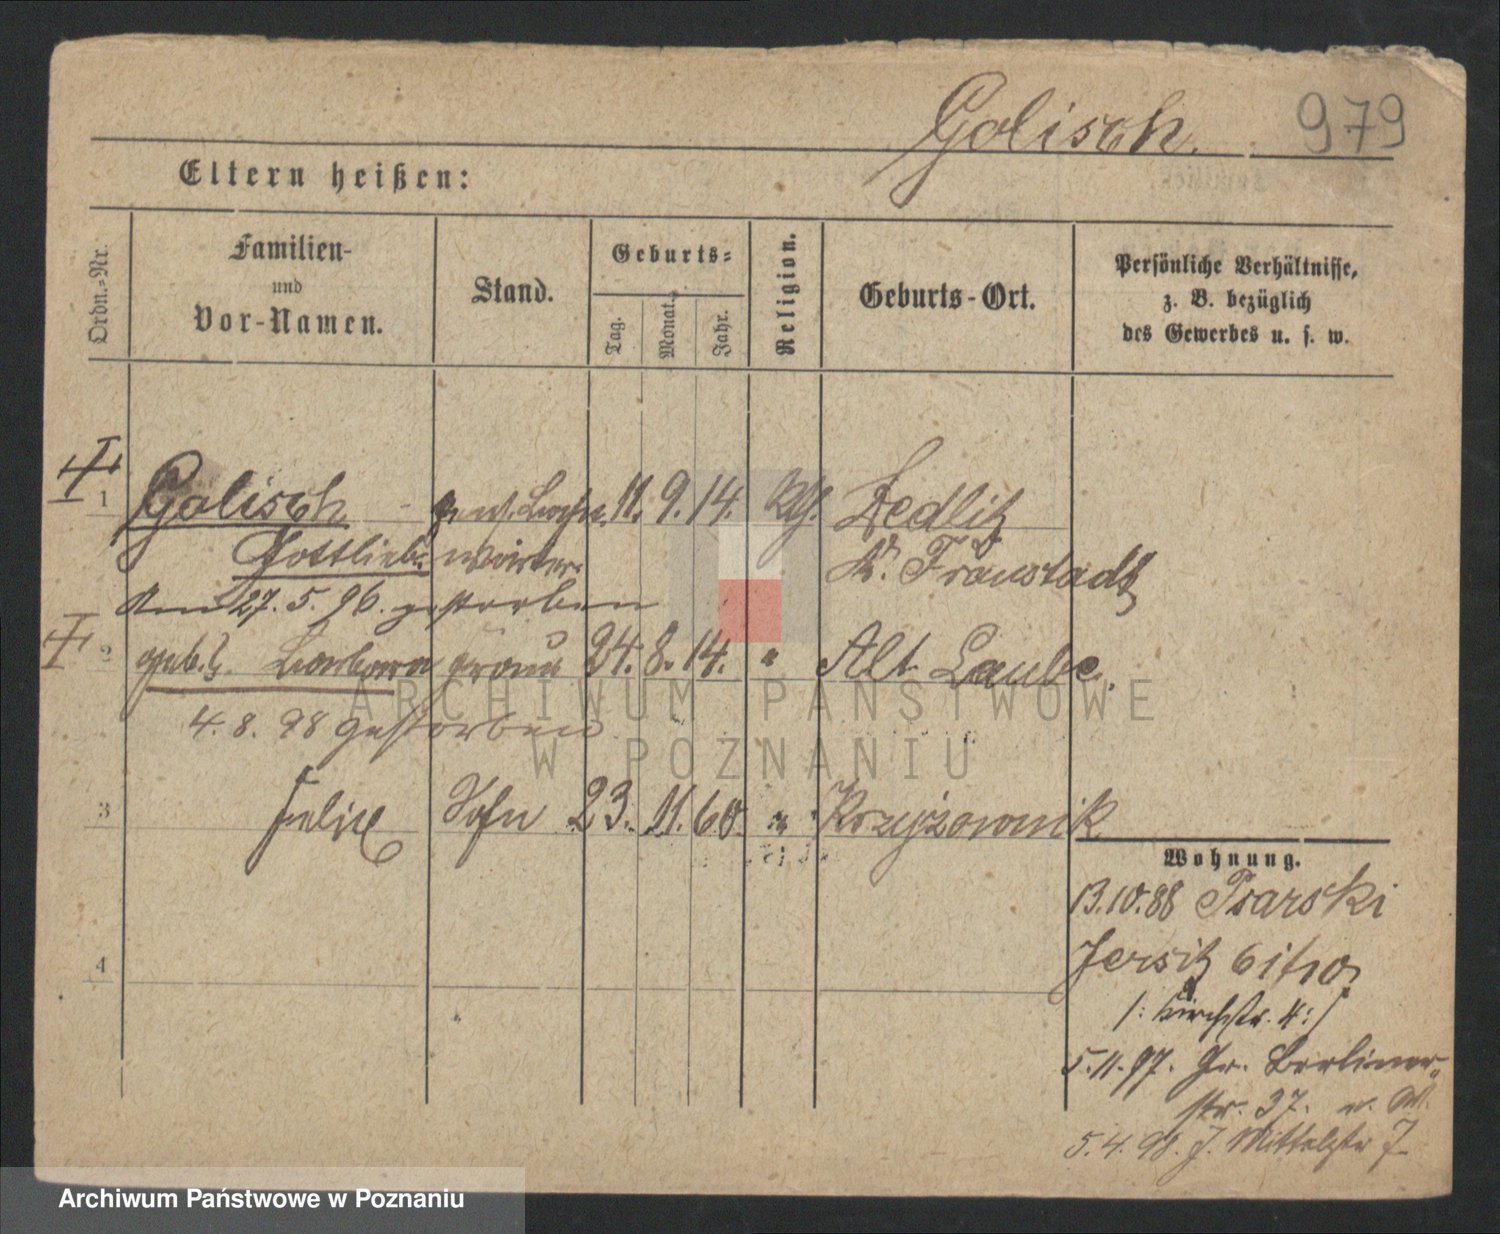 Golisch. 979
Eltern heißen:
Ordn.-Nr.
Familien-
und
Vor-Namen.
Stand.
Geburts-
Tag.
Monat.
Jahr.
Religion.
Geburts-Ort.
Persönliche Verhältnisse,
z. B. bezüglich
des Gewerbes u. s. w.
1 Golisch 11. 9. 14. Zedlitz
Gottlieb. wärter. Kr. Fraustadt
Am 27. 5. 96. gestorben
2 geb. Barbara Frau 24. 8. 14. " Alt Laube.
4. 8. 98 gestorben
ARCHIWUM PAŃSTWOWE
W POZNANIU
3 Felix Sohn 23. 11. 60. " Krzyżownik
Wohnung.
13.10.88 Psarski
4 Jersitz
/: Kirchstr. 4 :/
5.11.97. Gr. Berliner-
str. 37.
5. 4. 98. J. Mittelstr 7
Archiwum Państwowe w Poznaniu